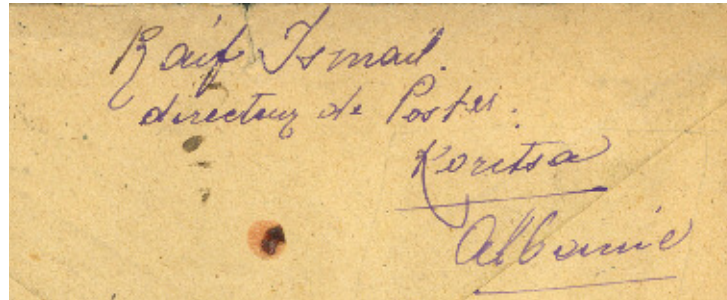 Raif Ismail.
directeur de Postes.
Koritsa
Albanie